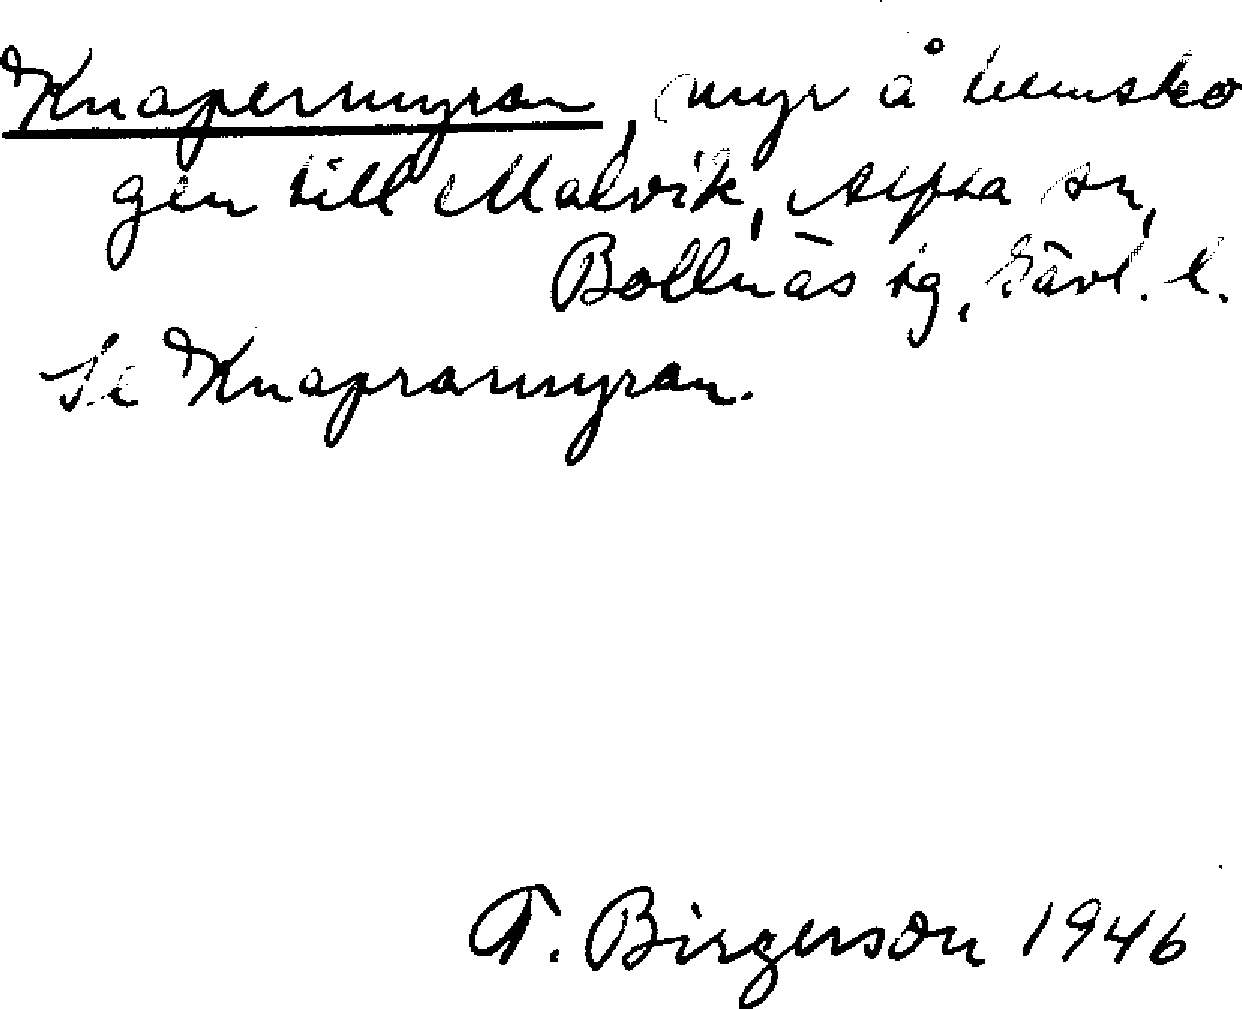 Knapermyran, myr å hemsko
gen till Malvik, Alfta sn,
Bollnäs tg, Gävl. l.
Se Knapramyran.
T. Birgerson 1946